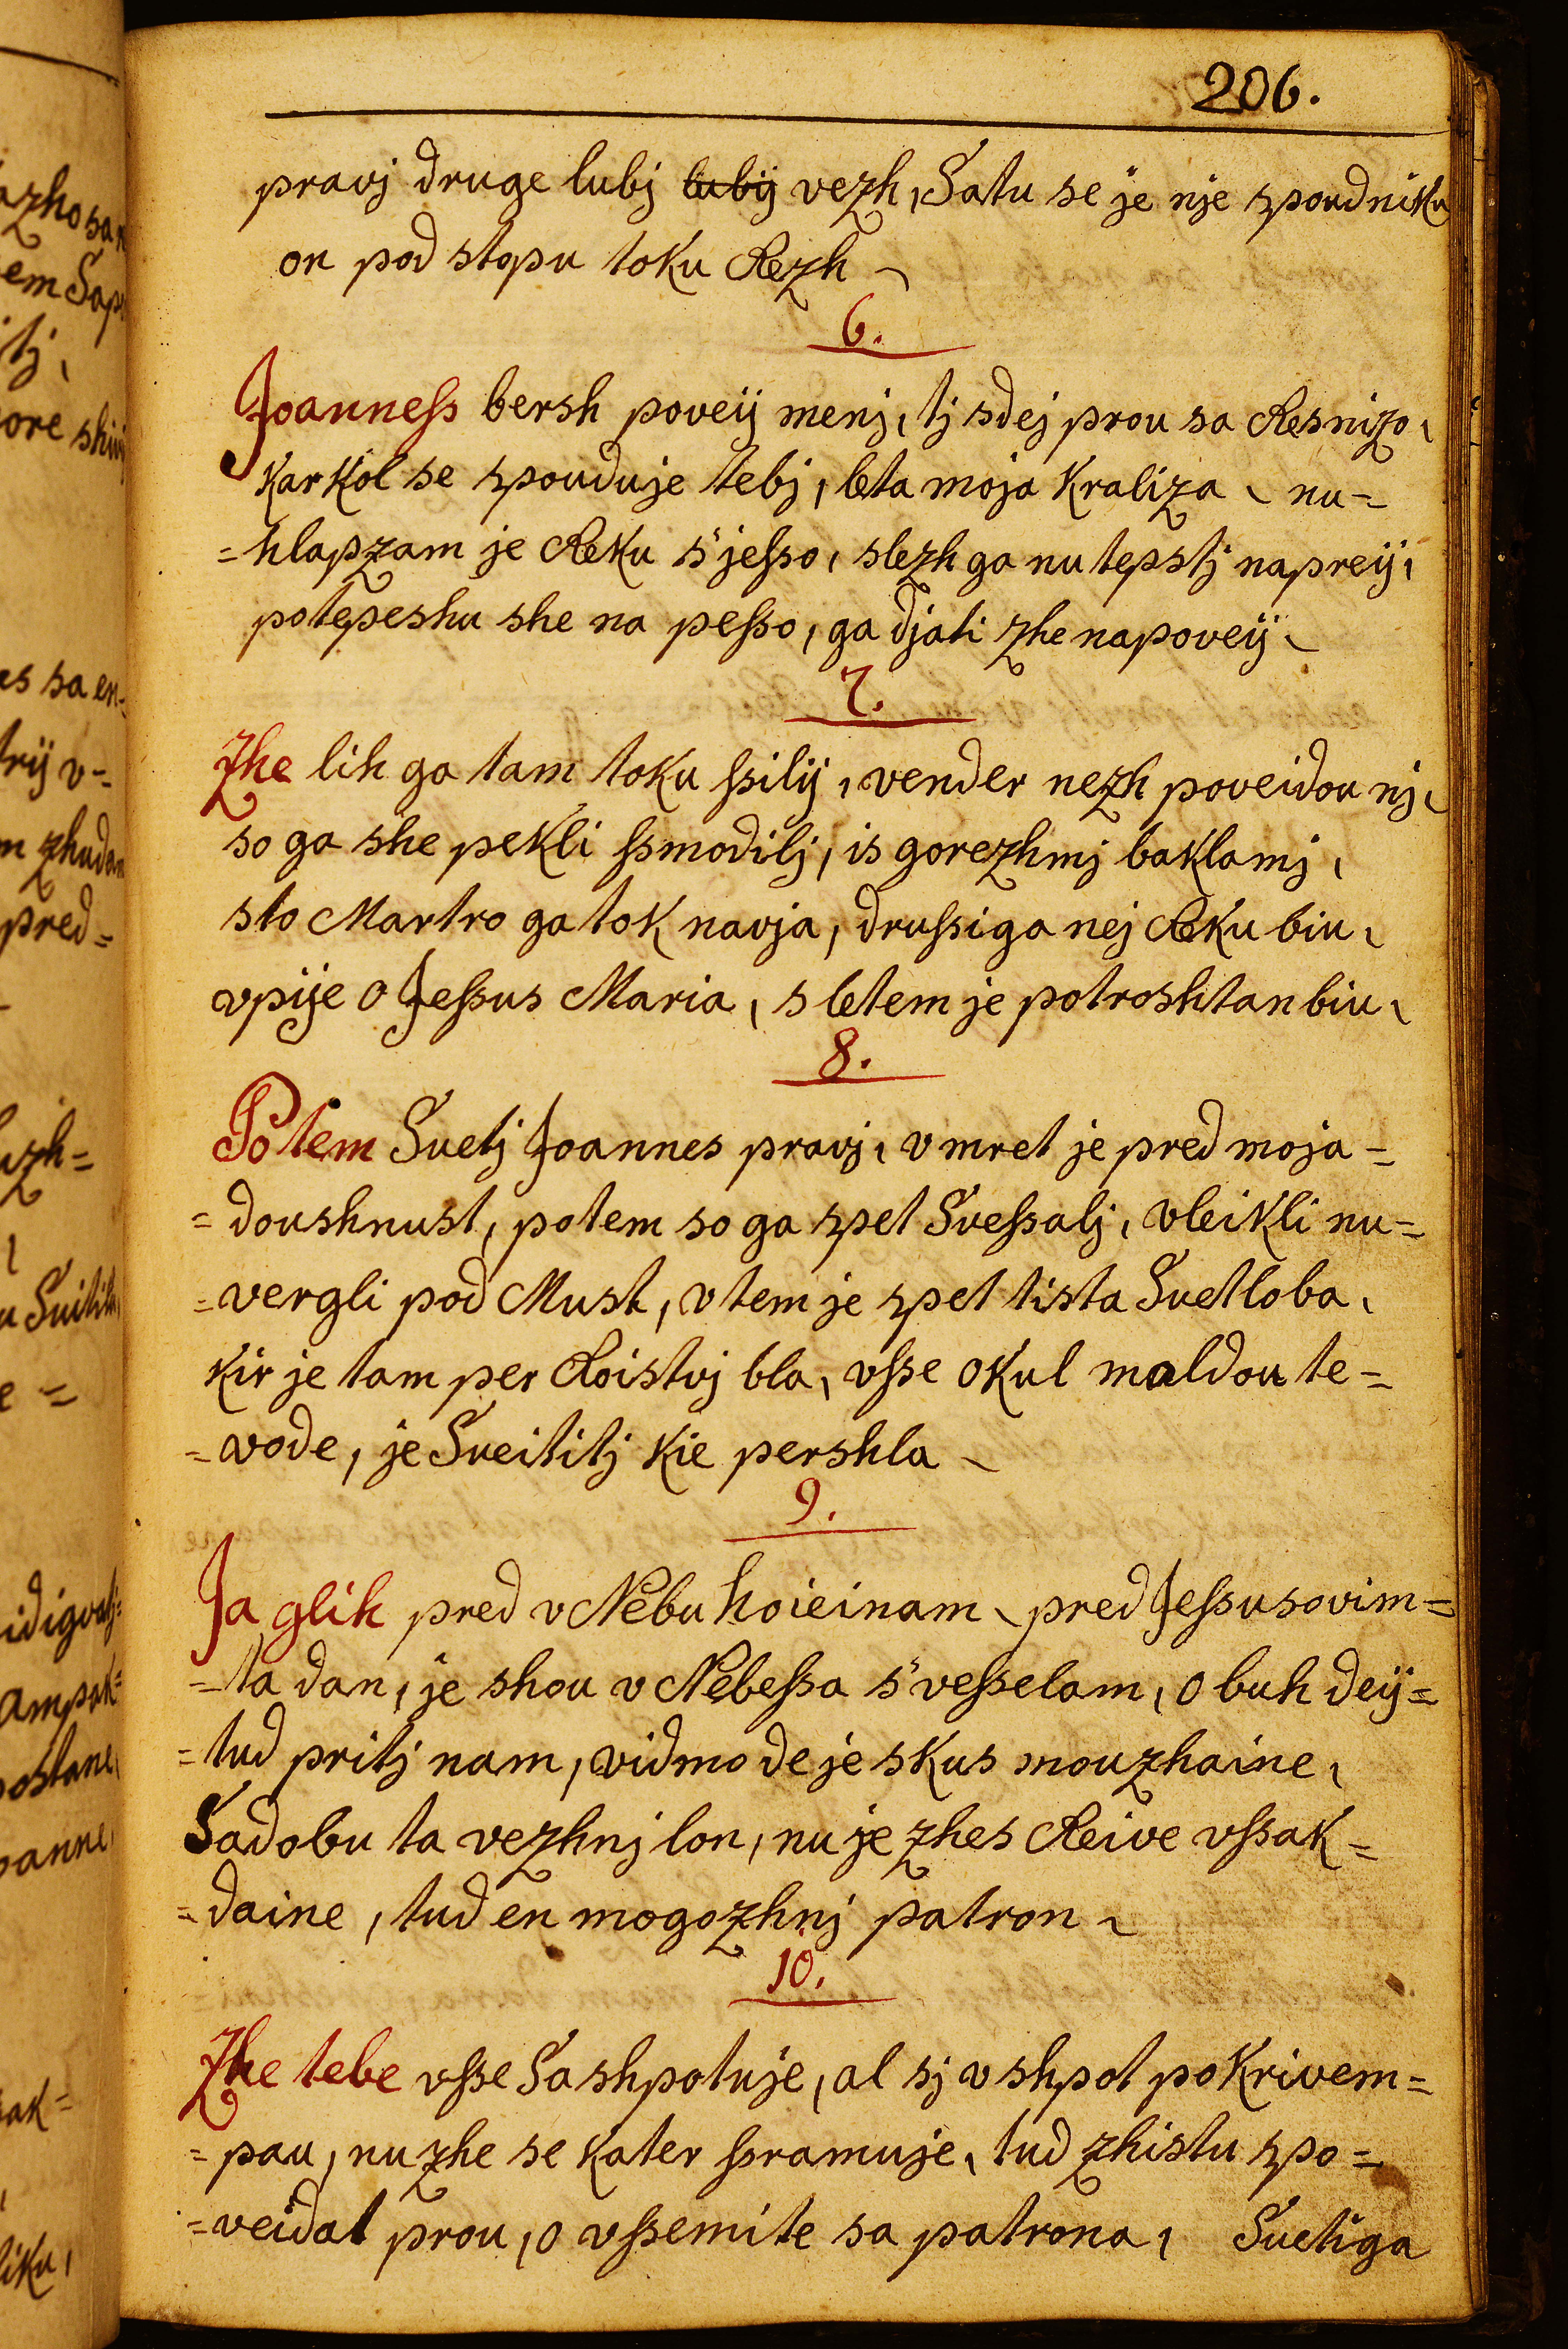 206.
pravj druge lubj lubij vezh, Satu se je nje spoudniku
on pod stopu toku Rezh
6.
Joanneſs bersh poveij menj, tj sdej prou sa Resnizo,
karkol se spouduje tebj, leta moja kraliza, nu=
=hlapzam je Reku s'jeſso, slezh ga nu tepstj napreij,
potepeshu she na peſso, ga djati zhe napoveij
7.
Zhe lih ga tam toku ſsilij, vender nezh poveidou nj,
so ga she pekli ſsmodilj, is gorezhmj baklamj,
sto Martro ga tok navja, druſsiga nej Reku biu,
vpije o Jeſsus Maria, s letem je potroshtan biu,
8.
Potem Suetj Joannes pravj, v mret je pred moja=
=doushnust, potem so ga spet Sveſsalj, vleikli nu=
=vergli pod Must, v tem je spet tista Suetloba,
kir je tam per Roistvj bla, vſse okul maldou te=
=vode, je Sueititj kie pershla
9.
Ja glih pred v Nebu hoieinam, pred Jeſsusovim=
=ta dan, je shou v Nebeſsa s'veſselam, o buh deij=
=tud pritj nam, vidmo de je skus mouzhaine,
Sadobu ta vezhnj lon, nu je zhes Reive vſsak=
=daine, tud en mogozhnj patron
10.
Zhe tebe vſse Sashpotuje, al sj v shpot po krivem=
=pau, nu zhe se kater ſsramuje, tud zhistu spo=
=veidat prou, o vſsemite sa patrona, Suetiga